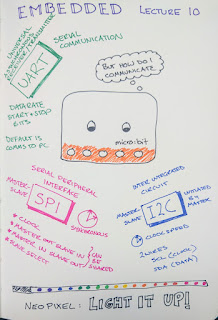 EMBEDDED LECTURE 10
UNIVERSAL
ASYNCHRONOUS
RECEIVER/TRANSMITTER
UART
SERIAL COMMUNICATION
DATARATE
START + STOP
BITS
DEFAULT IS
COMMS TO PC
BUT HOW DO I
COMMUNICATE
micro:bit
SERIAL PERIPHERAL
INTERFACE
MASTER-
SLAVE
SPI
SYNCHRONOUS
CLOCK
MASTER OUT SLAVE IN
MASTER IN SLAVE OUT
SLAVE SELECT
CAN
BE
SHARED
INTER INTEGRATED
CIRCUIT
MASTER-
SLAVE
I2C
INITIATED
BY
MASTER
CLOCK SPEED
2 WIRES
SCL (CLOCK)
SDA (DATA)
NEOPIXEL: LIGHT IT UP!